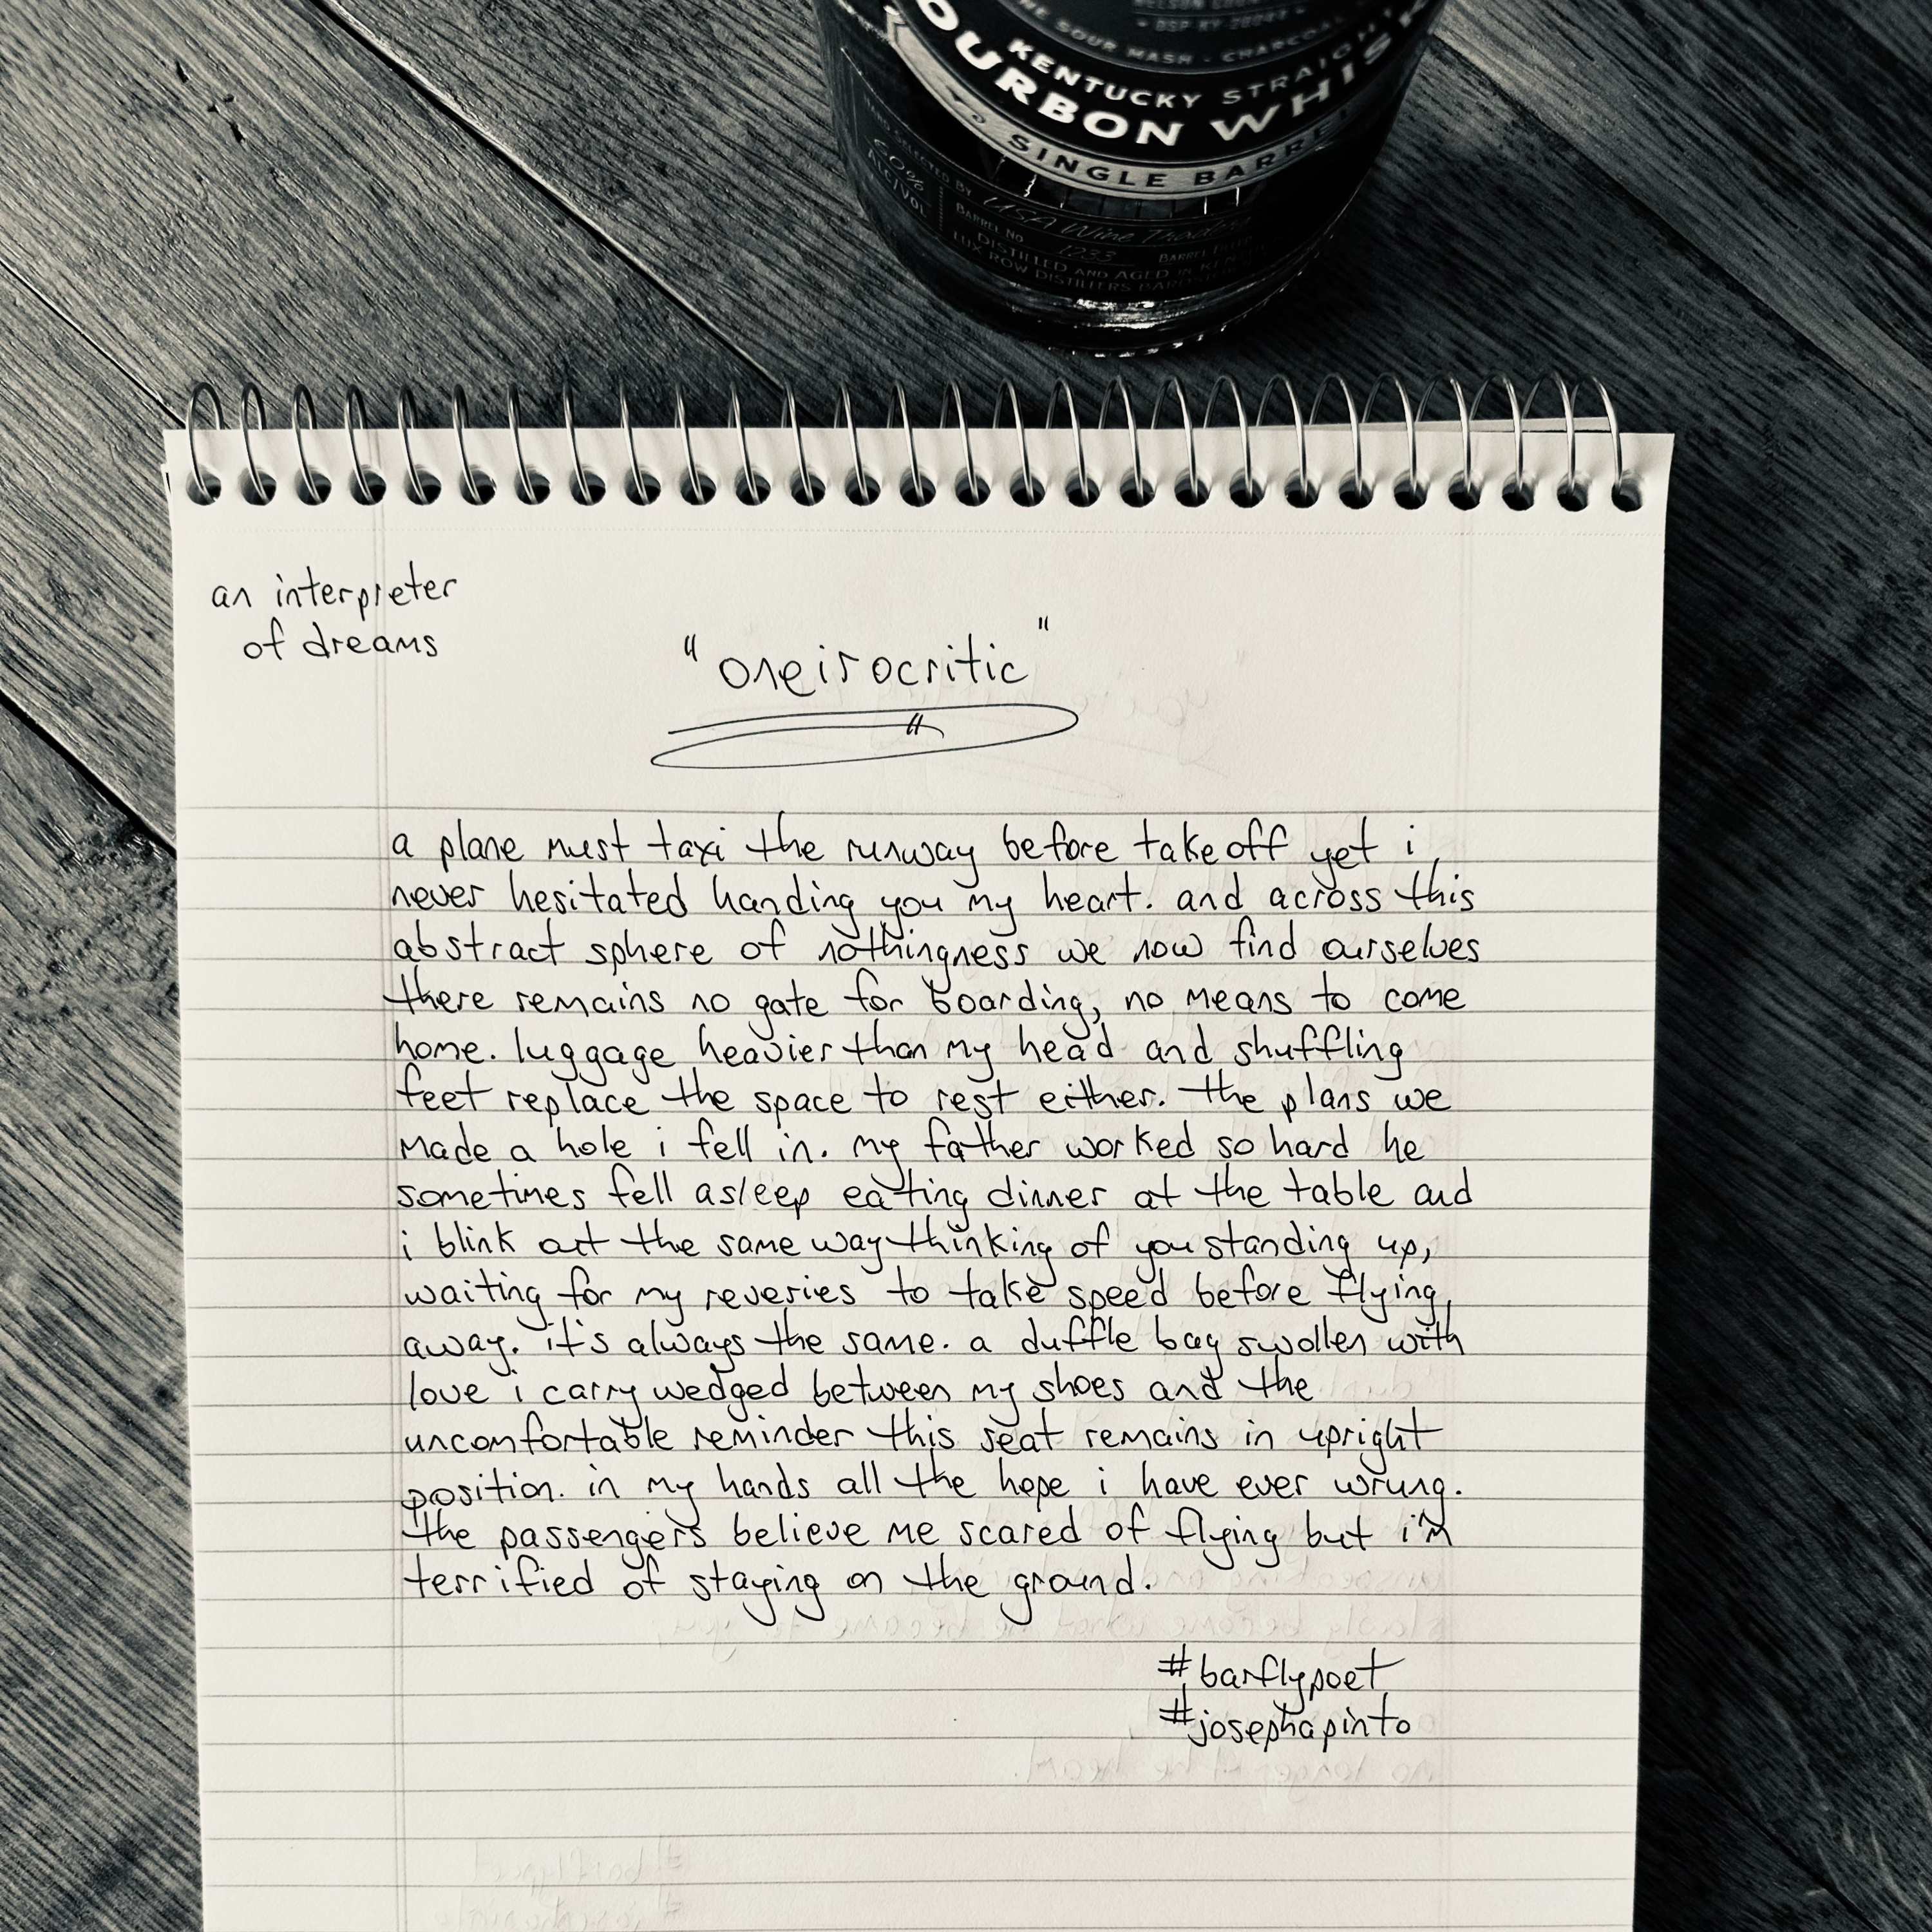 DSP KY 20047
SOUR MASH - CHARCOAL
KENTUCKY STRAIGHT
OURBON WHISK
SINGLE BARREL
SELECTED BY USA Wine Traders
60%
ALC/VOL
BARREL No 1233 BARREL
DISTILLED AND AGED IN
LUX ROW DISTILLERS
an interpreter
of dreams
"oneirocritic"
a plane must taxi the runway before takeoff yet i
never hesitated handing you my heart. and across this
abstract sphere of nothingness we now find ourselves
there remains no gate for boarding, no means to come
home. luggage heavier than my head and shuffling
feet replace the space to rest either. the plans we
made a hole i fell in. my father worked so hard he
sometimes fell asleep eating dinner at the table and
i blink out the same way thinking of you standing up,
waiting for my reveries to take speed before flying
away. it's always the same. a duffle bag swollen with
love i carry wedged between my shoes and the
uncomfortable reminder this seat remains in upright
position. in my hands all the hope i have ever wrung.
the passengers believe me scared of flying but i'm
terrified of staying on the ground.
#barflypoet
#josephapinto